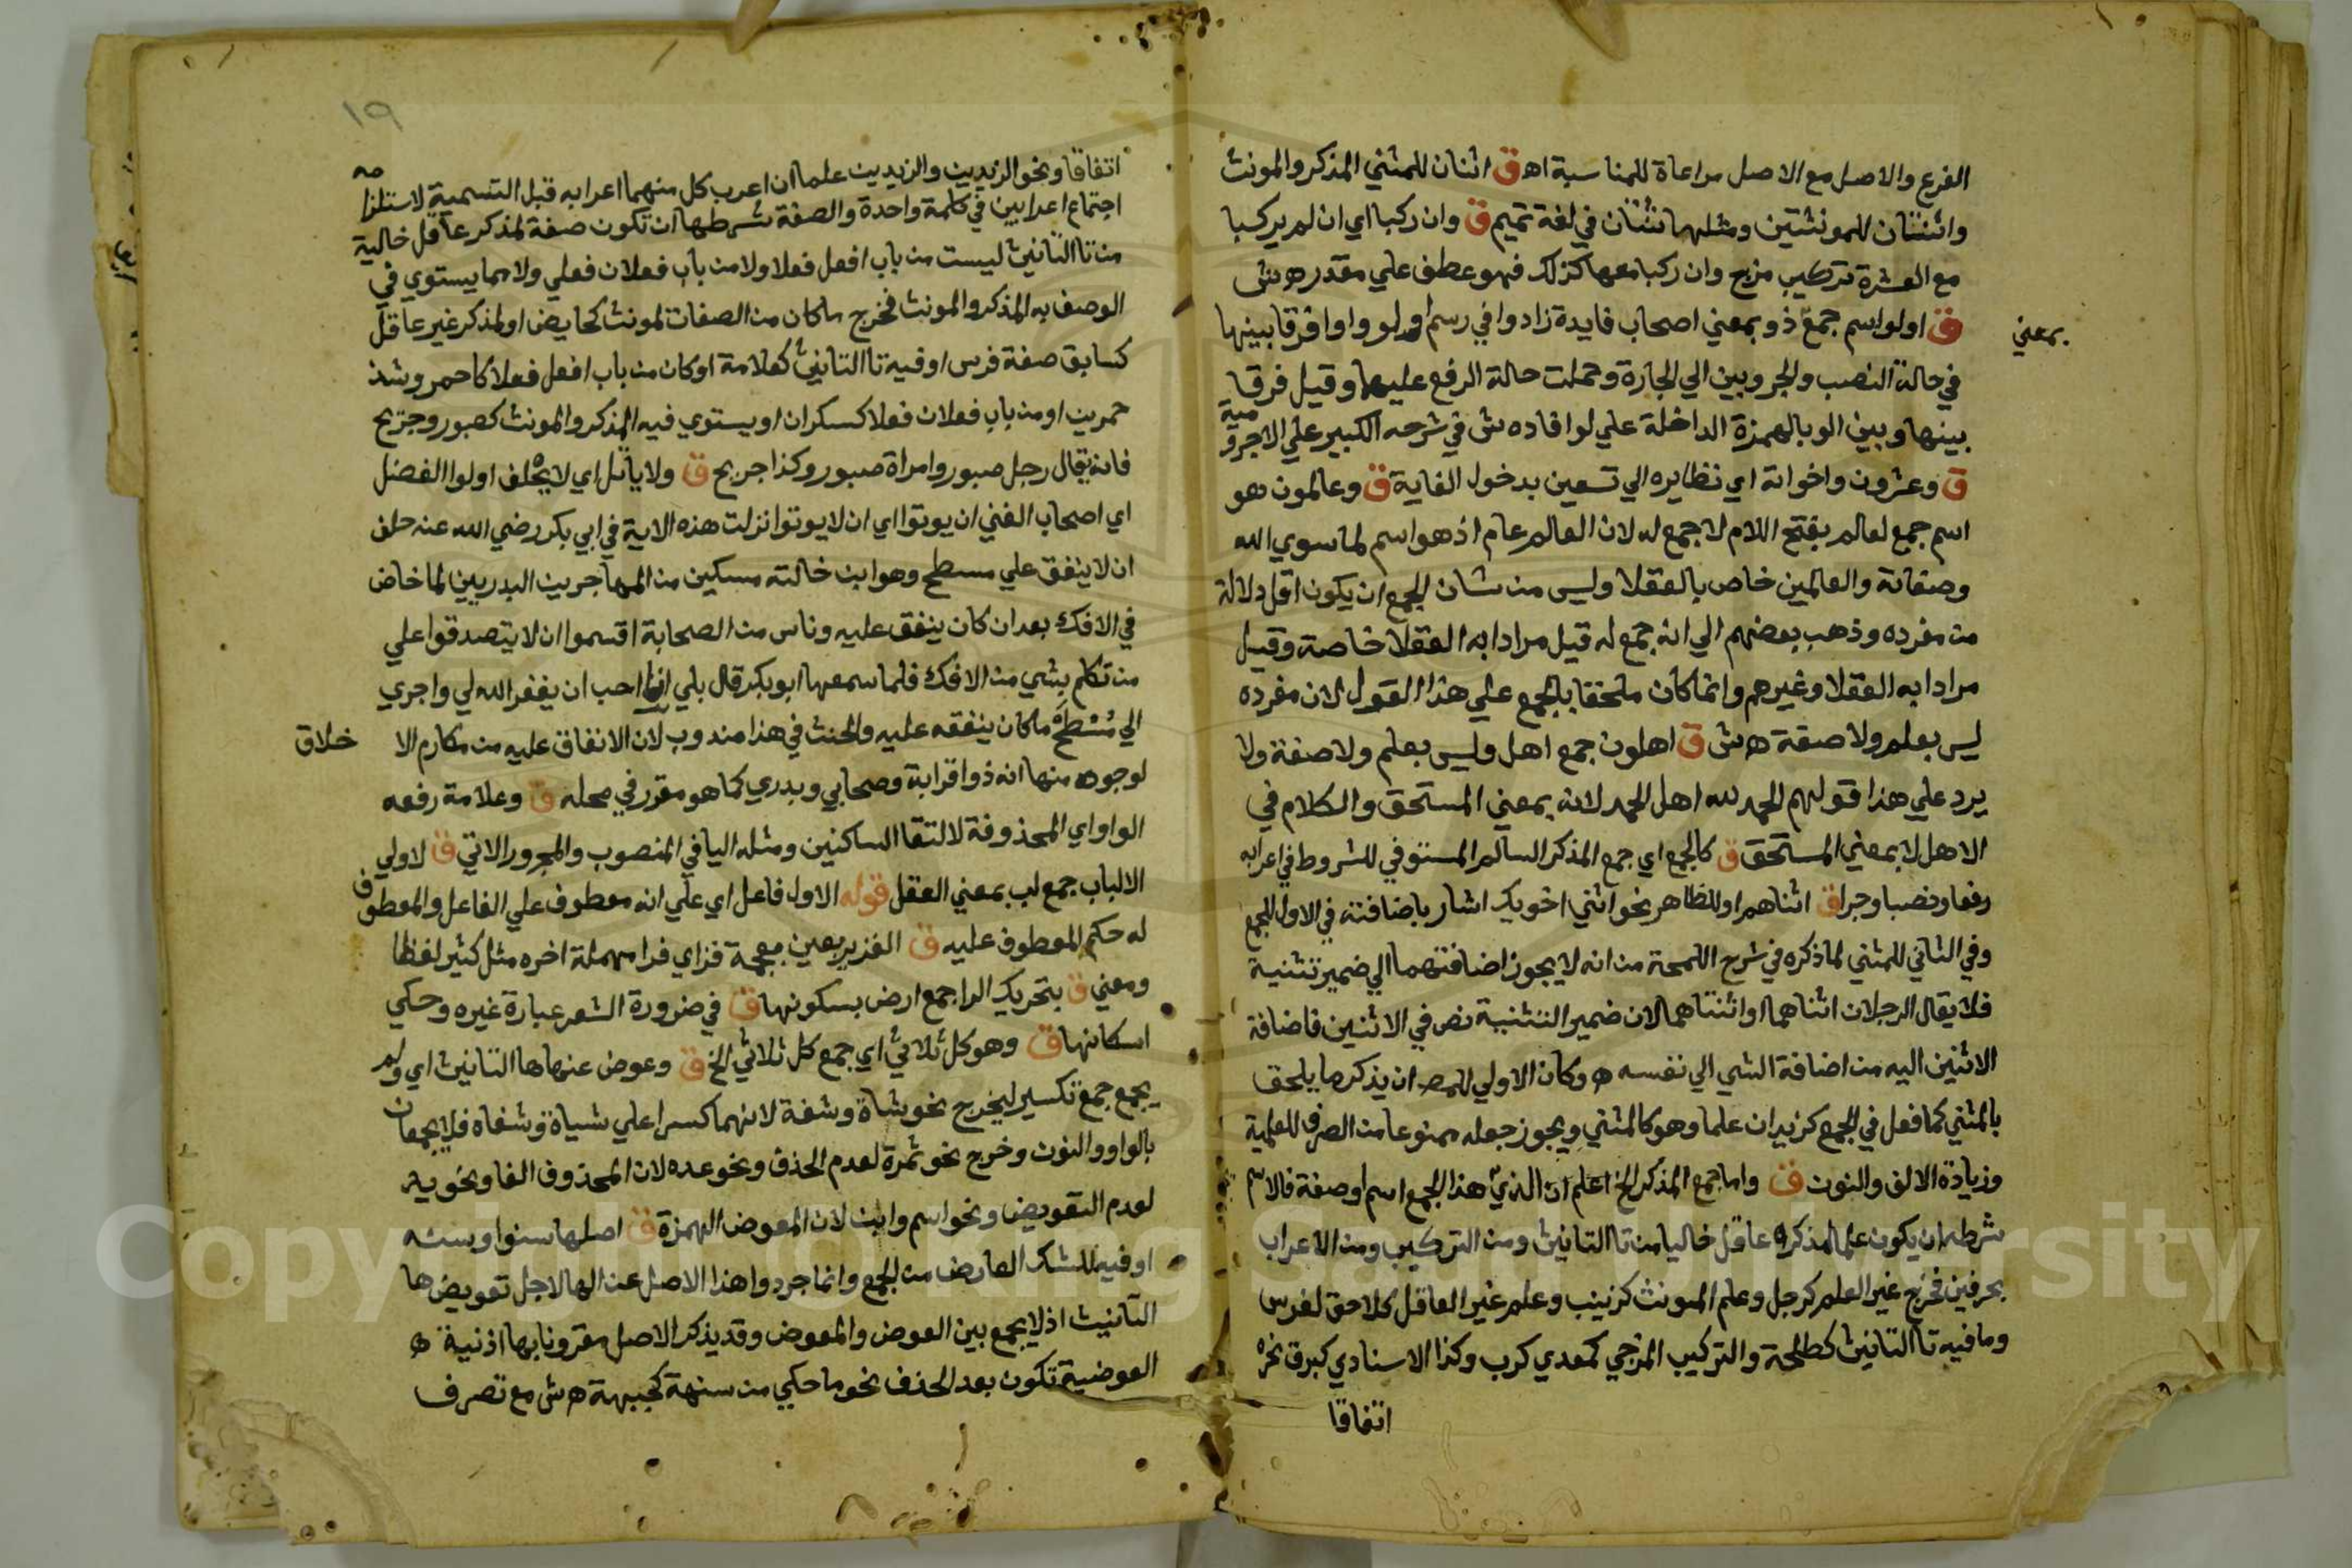 الفرع والاصل مع الاصل مراعاة للمناسبة اه ق اثنان للمثني المذكر والمونث
واثنتان للمونثتين ومثلها ثنتان في لغة تميم ق وان ركبا اي ان لم يركبا
مع العشرة تركيب مزج وان ركبا معها كذلك فهو عطف علي مقدر ه ش
ق اولو اسم جمع ذو بمعني اصحاب فايدة زادوا في رسم اولو واوا فرقا بينها
بمعني
في حالة النصب والجر وبين الي الجارة وحملت حالة الرفع عليها وقيل فرقا
بينها وبين الو بالهمزة الداخلة علي لو افاده ش في شرحه الكبير علي الاجرومية
ق وعشرون واخواته اي نظايره الي تسعين بدخول الغاية ق وعالمون هو
اسم جمع لعالم بفتح اللام لا جمع له لان العالم عام اذ هو اسم لما سوي الله
وصفاته والعالمين خاص بالعقلا وليس من شان الجمع ان يكون اقل دلالة
من مفرده وذهب بعضهم الي انه جمع له قيل مرادا به العقلا خاصة وقيل
مرادا به العقلا وغيرهم وانما كان ملحقا بالجمع علي هذا القول لان مفرده
ليس بعلم ولا صفة ه ش ق اهلون جمع اهل وليس بعلم ولا صفة ولا
يرد علي هذا قولهم الحمد لله اهل الحمد لانه بمعني المستحق والكلام في
الاهل لا بمعني المستحق ق كالجمع اي جمع المذكر السالم المستوفي للشروط في اعرابه
رفعا ونصبا وجرا ق اثناهم او للظاهر نحو اثني اخويك اشار باضافته في الاول للجمع
وفي الثاني للمثني لما ذكره في شرح اللمحة من انه لا يجوز اضافتهما الي ضمير تثنية
فلا يقال الرجلان اثناهما او اثنتاهما لان ضمير التثنية نص في الاثنين فاضافة
الاثنين اليه من اضافة الشي الي نفسه ه وكان الاولي للمصـ ان يذكر ما يلحق
بالمثني كما فعل في الجمع كزيدان علما وهو كالمثني ويجوز جعله ممنوعا من الصرف للعلمية
وزيادة الالف والنون ق واما جمع المذكر الخ اعلم ان الذي هذا الجمع اسم او صفة فالاسم
شرطه ان يكون علما لمذكر عاقل خاليا من تا التانيث ومن التركيب ومن الاعراب
بحرفين فخرج غير العلم كرجل وعلم المونث كزينب وعلم غير العاقل كلاحق لفرس
وما فيه تا التانيث كطلحة والتركيب المزجي كمعدي كرب وكذا الاسنادي كبرق نحره
اتفاقا
١٩
اتفاقا ونحو الزيدين والزيدين علما ان اعرب كل منهما اعرابه قبل التسمية لاستلزامه
اجتماع اعرابين في كلمة واحدة والصفة شرطها ان تكون صفة لمذكر عاقل خالية
من تا التانيث ليست من باب افعل فعلا ولا من باب فعلان فعلي ولا مما يستوي في
الوصف به المذكر والمونث فخرج ما كان من الصفات لمونث كحايض او لمذكر غير عاقل
كسابق صفة فرس او فيه تا التانيث كعلامة او كان من باب افعل فعلا كاحمر وشذ
حمرين او من باب فعلان فعلا كسكران او يستوي فيه المذكر والمونث كصبور وجريح
فانه يقال رجل صبور وامراة صبور وكذا جريح ق ولا ياتل اي لا يحلف اولوا الفضل
اي اصحاب الغني ان يوتوا اي ان لا يوتوا نزلت هذه الاية في ابي بكر رضي الله عنه حلف
ان لا ينفق علي مسطح وهو ابن خالته مسكين من المهاجرين البدريين لما خاض
في الافك بعد ان كان ينفق عليه وناس من الصحابة اقسموا ان لا يتصدقوا علي
من تكلم بشي من الافك فلما سمعها ابو بكر قال بلي انا احب ان يغفر الله لي واجري
الي مسطح ما كان ينفقه عليه والحنث في هذا مندوب لان الانفاق عليه من مكارم الا خلاق
لوجوه منها انه ذو اقرابة وصحابي وبدري كما هو مقرر في محله ق وعلامة رفعه
الواو اي المحذوفة لالتقا الساكنين ومثله اليا في المنصوب والمجرور الاتي ق لاولي
الالباب جمع لب بمعني العقل قوله الاول فاعل اي علي انه معطوف علي الفاعل والمعطوف
له حكم المعطوف عليه ق الغزير بغين معجمة فزاي فرا مهملة اخره مثل كثير لفظا
ومعني ق بتحريك الرا جمع ارض بسكونها ق في ضرورة الشعر عبارة غيره وحكي
اسكانها ق وهو كل ثلاثي اي جمع كل ثلاثي الخ ق وعوض عنها ها التانيث اي ولم
يجمع جمع تكسير ليخرج نحو شاة وشفة لانهما كسرا علي شياة وشفاه فلا يجمعان
بالواو والنون وخرج نحو ثمرة لعدم الحذف ونحو عده لان المحذوف الفا ونحو يد
لعدم التعويض ونحو اسم وابن لان المعوض الهمزة ق اصلها سنو او سنه
او فيه للشك العارض من الجمع وانما جردوا هذا الاصل عن الها لاجل تعويض ها
التانيث اذ لا يجمع بين العوض والمعوض وقد يذكر الاصل مقرونا بها اذ نية ه
العوضية تكون بعد الحذف نحو ما حكي من سنهة كجبهة ه ش مع تصرف
Copyright © King Saud University